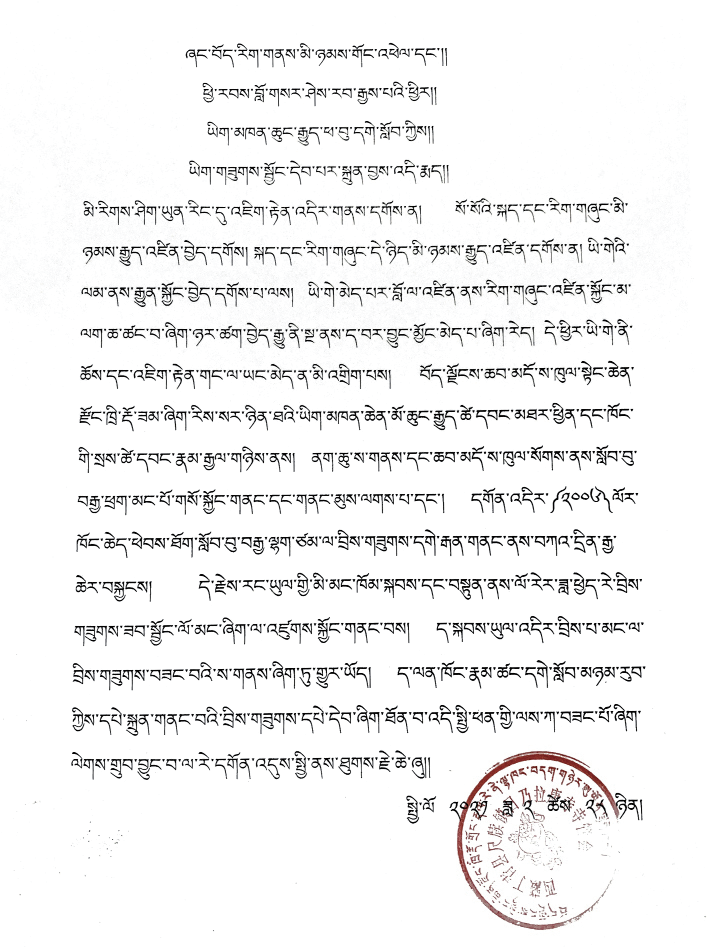 ཞང་བོད་རིག་གནས་མི་ཉམས་གོང་འཕེལ་དང་།།
ཕྱི་རབས་བློ་གསར་ཤེས་རབ་རྒྱས་པའི་ཕྱིར།།
ཡིག་མཁན་ཆུང་རྒྱུད་ཕ་བུ་དགེ་སློབ་ཀྱིས།།
ཡིག་གཟུགས་སྦྱོང་དེབ་པར་སྐྲུན་བྱས་འདི་རྨད།།
མི་རིགས་ཤིག་ཡུན་རིང་དུ་འཇིག་རྟེན་འདིར་གནས་དགོས་ན། སོ་སོའི་སྐད་དང་རིག་གཞུང་མི་
ཉམས་རྒྱུད་འཛིན་བྱེད་དགོས། སྐད་དང་རིག་གཞུང་དེ་ཉིད་མི་ཉམས་རྒྱུད་འཛིན་དགོས་ན། ཡི་གེའི་
ལམ་ནས་རྒྱུན་སྐྱོང་བྱེད་དགོས་པ་ལས། ཡི་གེ་མེད་པར་བློ་ལ་འཛིན་ནས་རིག་གཞུང་འཛིན་སྐྱོང་མ་
ལག་ཆ་ཚང་བ་ཞིག་ཉར་ཚག་བྱེད་རྒྱུ་ནི་སྔ་ནས་ད་བར་བྱུང་མྱོང་མེད་པ་ཞིག་རེད། དེ་ཕྱིར་ཡི་གེ་ནི་
ཆོས་དང་འཇིག་རྟེན་གང་ལ་ཡང་མེད་ན་མི་འགྲིག་པས། བོད་ལྗོངས་ཆབ་མདོ་ས་ཁུལ་སྟེང་ཆེན་
རྫོང་ཁྲི་རྡོ་ཟམ་ཞིག་རིས་སར་ཉིན་ཐའི་ཡིག་མཁན་ཆེན་མོ་ཆུང་རྒྱུད་ཚེ་དབང་མཐར་ཕྱིན་དང་ཁོང་
གི་སྲས་ཚེ་དབང་རྣམ་རྒྱལ་གཉིས་ནས། ནག་ཆུ་ས་གནས་དང་ཆབ་མདོ་ས་ཁུལ་སོགས་ནས་སློབ་བུ་
བརྒྱ་ཕྲག་མང་པོ་གསོ་སྐྱོང་གནང་དང་གནང་མུས་ལགས་པ་དང་། དགོན་འདིར་༼༢༠༠༦༽ལོར་
ཁོང་ཆེད་ཕེབས་ཐོག་སློབ་བུ་བརྒྱ་ལྷག་ཙམ་ལ་བྲིས་གཟུགས་དགེ་རྒན་གནང་ནས་བཀའ་དྲིན་རྒྱ་
ཆེར་བསྐྱངས། དེ་རྗེས་རང་ཡུལ་གྱི་མི་མང་ཁོམ་སྐབས་དང་བསྟུན་ནས་ལོ་རེར་ཟླ་ཕྱེད་རེ་བྲིས་
གཟུགས་ཟབ་སྦྱོང་ལོ་མང་ཞིག་ལ་འཛུགས་སྐྱོང་གནང་བས། ད་སྐབས་ཡུལ་འདིར་བྲིས་པ་མང་ལ་
བྲིས་གཟུགས་བཟང་བའི་ས་གནས་ཞིག་ཏུ་གྱུར་ཡོད། ད་ལན་ཁོང་རྣམ་ཚང་དགེ་སློབ་མཉམ་རུབ་
ཀྱིས་དཔེ་སྐྲུན་གནང་བའི་བྲིས་གཟུགས་དཔེ་དེབ་ཞིག་ཐོན་བ་འདི་སྤྱི་ཕན་གྱི་ལས་ཀ་བཟང་པོ་ཞིག་
ལེགས་གྲུབ་བྱུང་བ་ལ་རེ་དགོན་འདུས་སྤྱི་ནས་ཐུགས་རྗེ་ཆེ་ཞུ།།
སྤྱི་ལོ ༢༠༢༡ ཟླ་ ༢ ཚེས་ ༢༥ ཉིན།